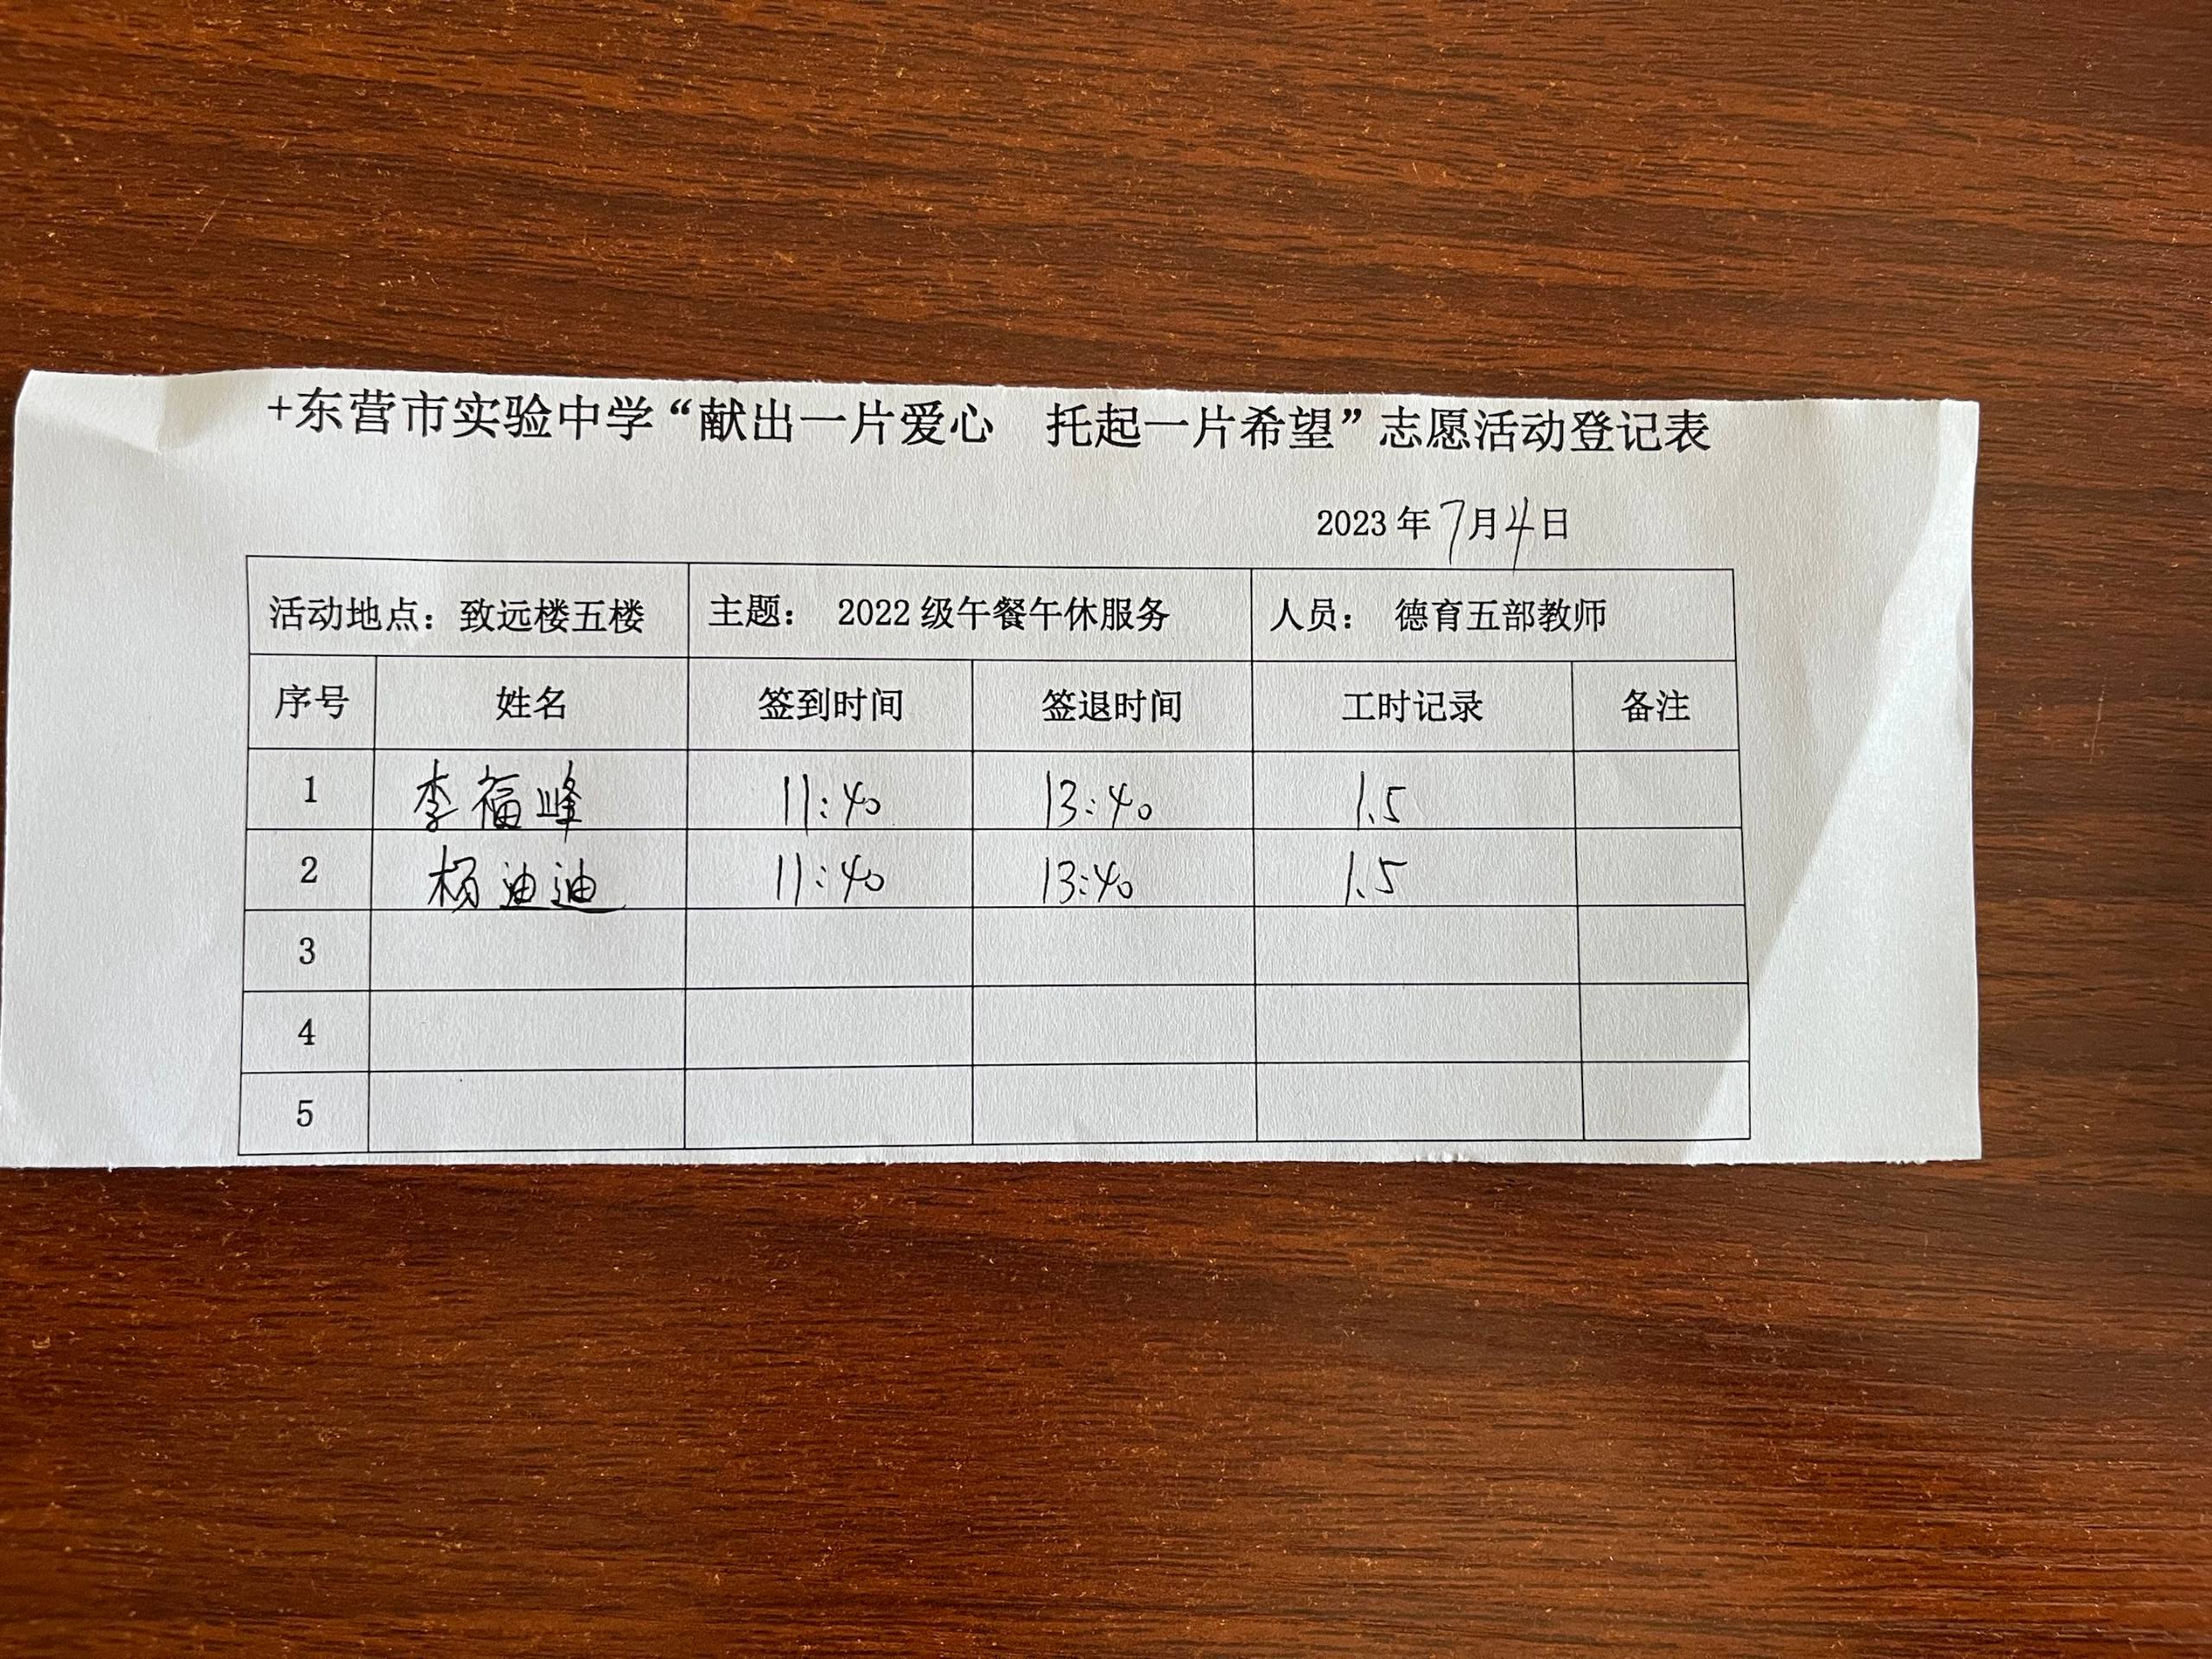 +东营市实验中学“献出一片爱心 托起一片希望”志愿活动登记表
2023年7月4日
活动地点：致远楼五楼 主题： 2022级午餐午休服务 人员： 德育五部教师
序号 姓名 签到时间 签退时间 工时记录 备注
1 李福峰 11:40 13:40 1.5
2 杨迪迪 11:40 13:40 1.5
3
4
5